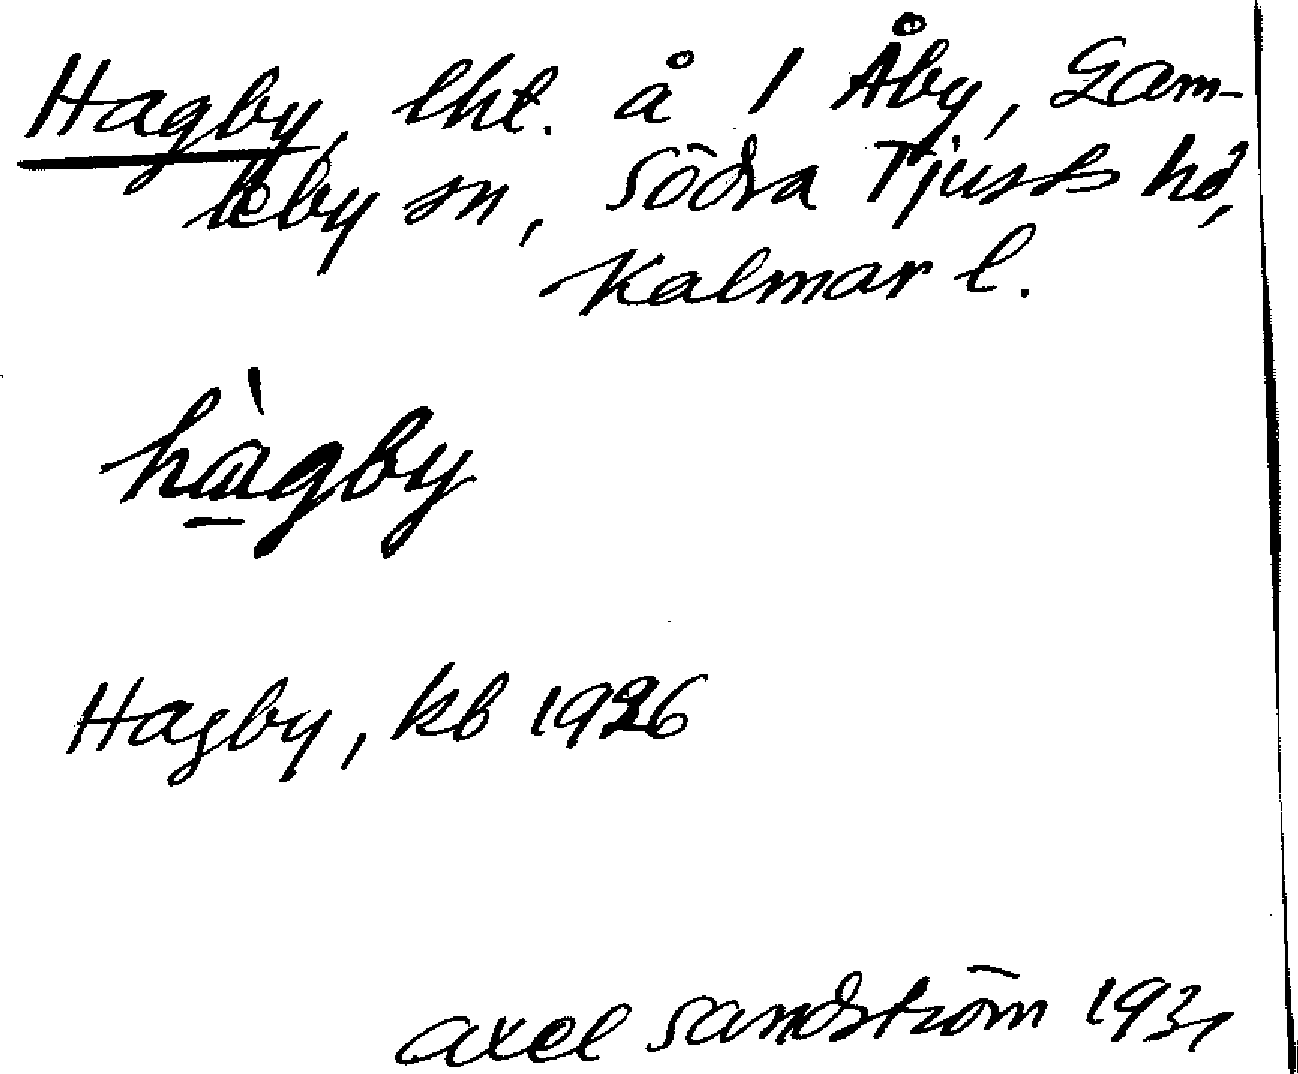 Hagby, lht. å 1 Åby, Gam-
leby sn, Södra Tjusts hd,
Kalmar l.
hàgby
Hagby, kb 1926
Axel Sandström